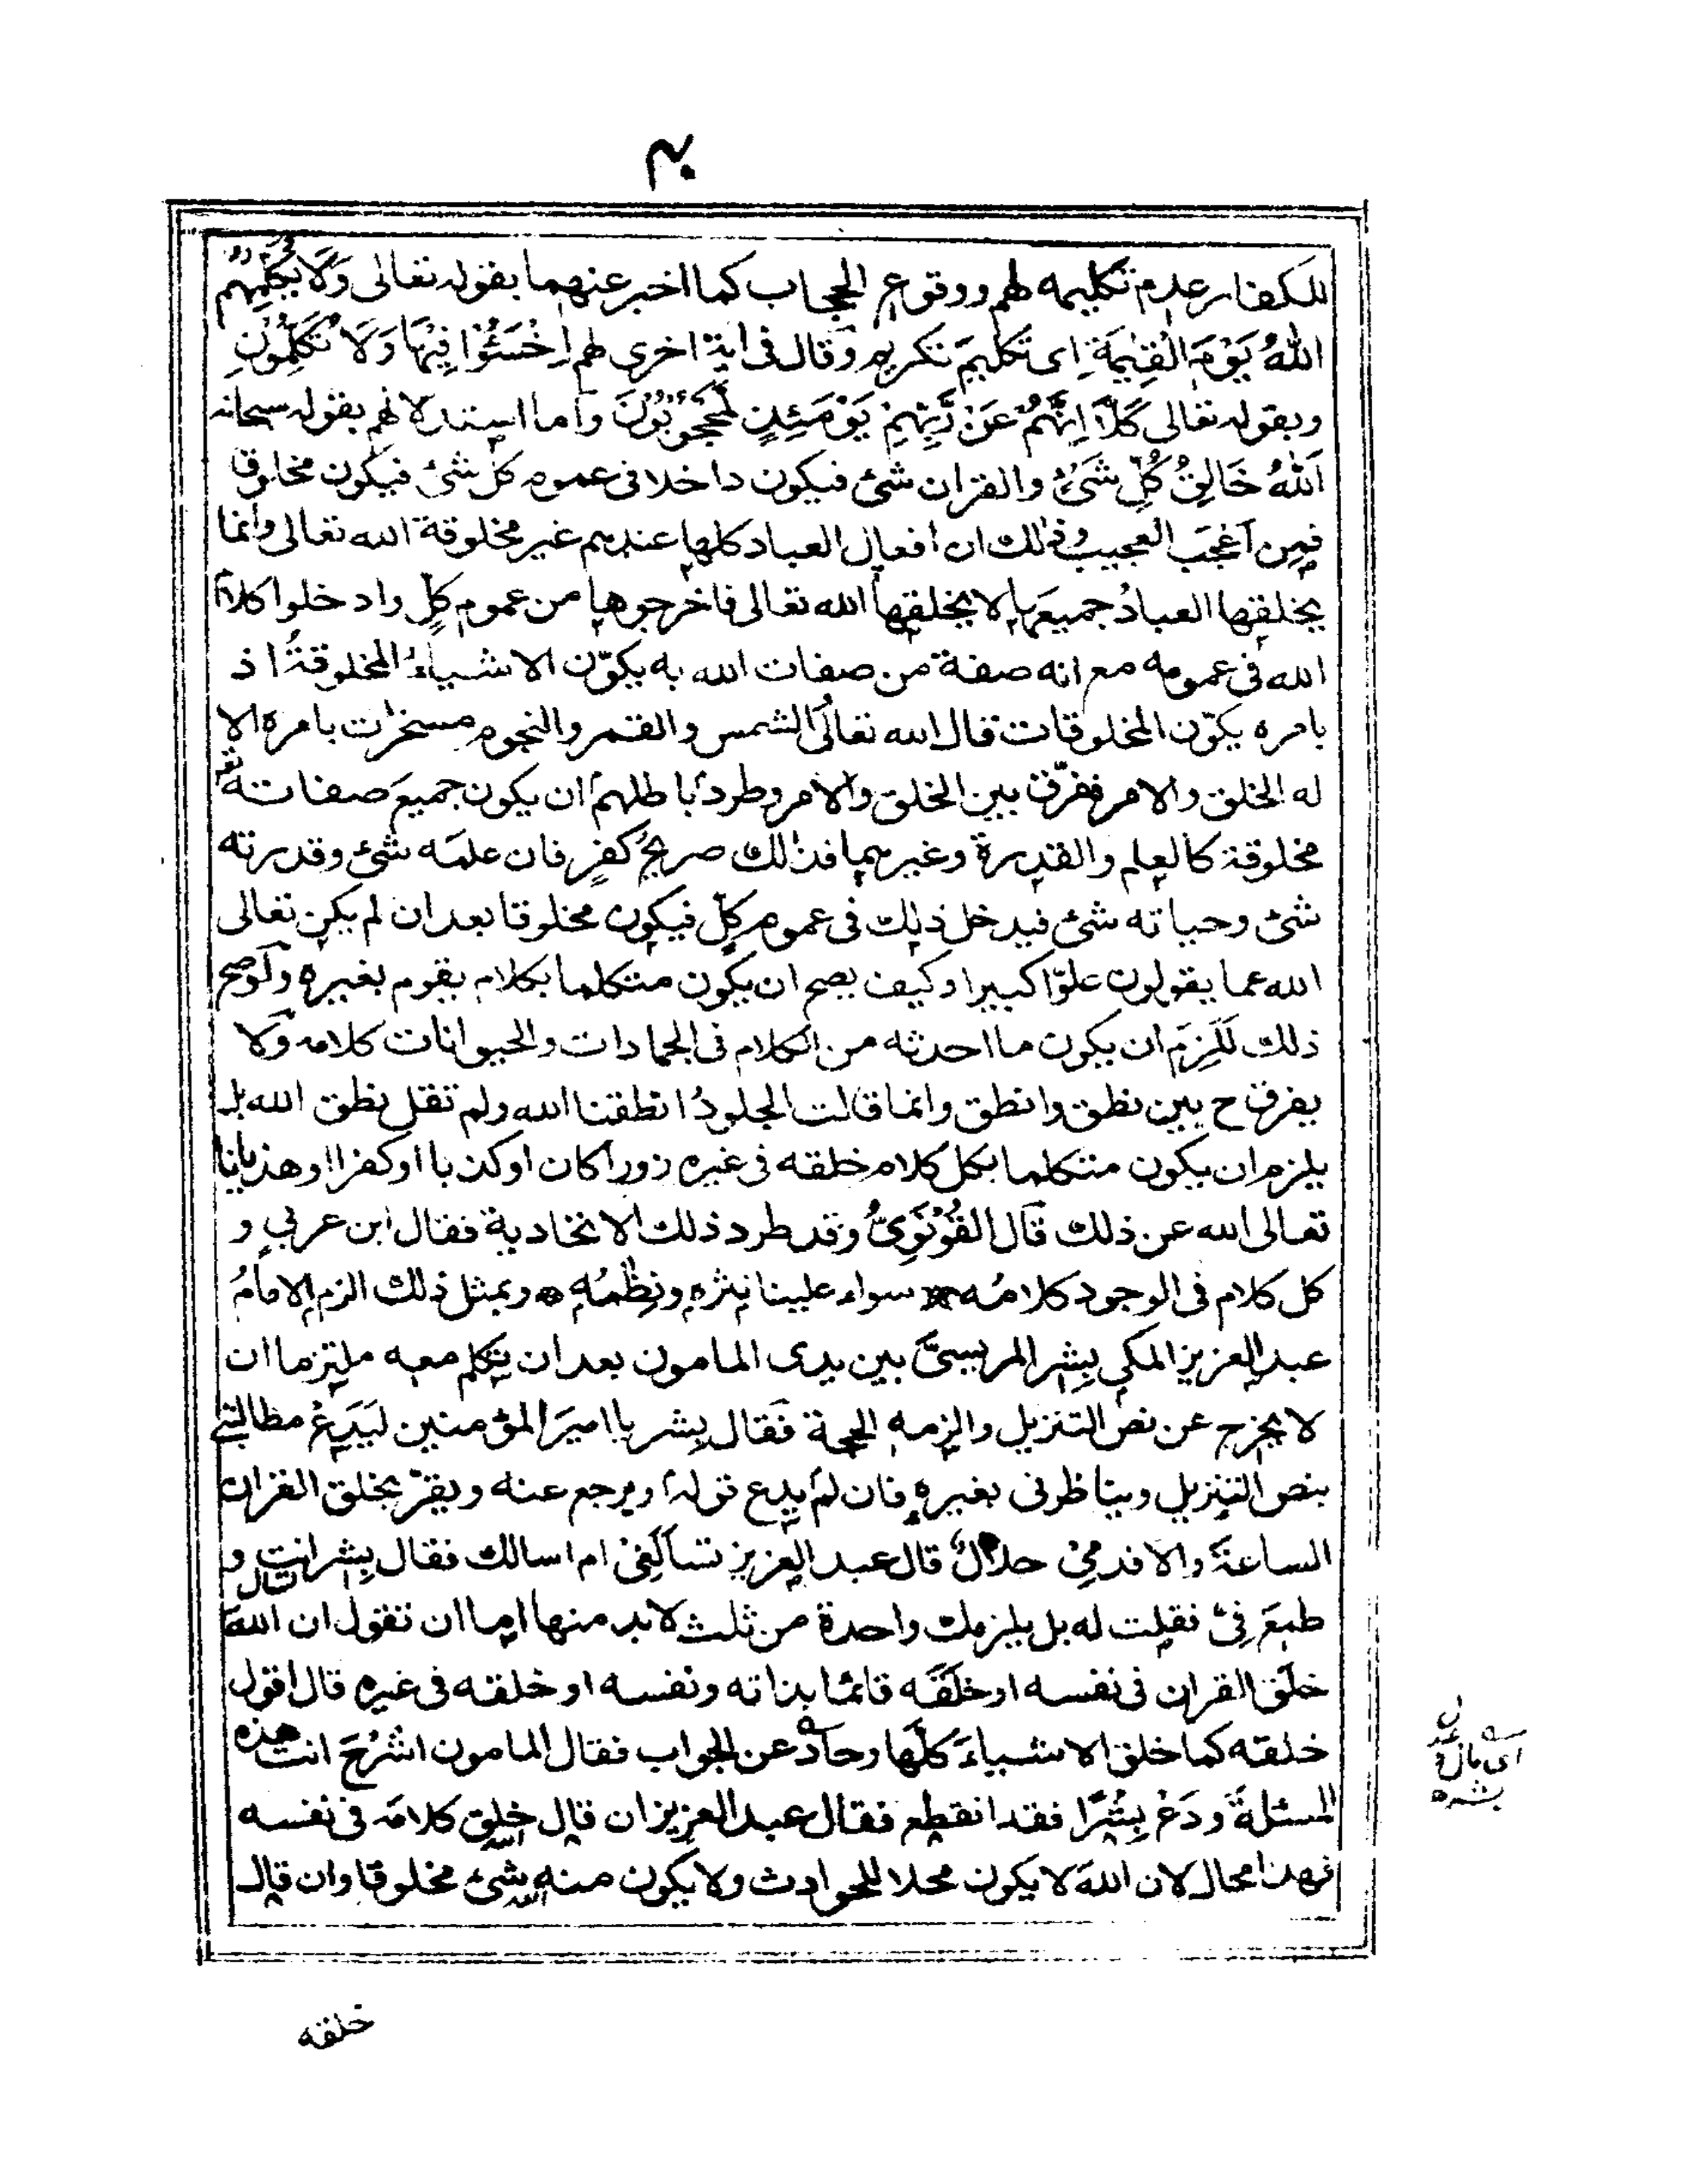 ٤٠
للكفار عدم تكليمه لهم ووقوع الحجاب كما اخبر عنهما بقوله تعالى وَلَا يُكَلِّمُهُمُ
اللهُ يَوْمَ الْقِيٰمَةِ اى تكليمَ تكريم وقال فى اية اخرى لهم اِخْسَئُوْا فِيْهَا وَلَا تُكَلِّمُوْنِ
وبقوله تعالى كَلَّا اِنَّهُمْ عَنْ رَّبِّهِمْ يَوْمَئِذٍ لَّمَحْجُوْبُوْنَ واما استدلالهم بقوله سبحانه
اَللهُ خَالِقُ كُلِّ شَىْءٍ والقران شئ فيكون داخلا فى عموم كل شئ فيكون مخلوقا
فمِن اَعْجَب العجيب وذلك ان افعال العباد كلها عندهم غير مخلوقة الله تعالى وانما
يخلقها العبادُ جميعَها لا يخلقها الله تعالى فاخرجوها من عموم كلٍّ وادخلوا كلامَ
الله فى عمومه مع انه صفة من صفات الله به يكوّن الاشياءُ المخلوقةُ اذ
بامره يكوّن المخلوقات قال الله تعالى الشمس والقمر والنجوم مسخرات بامره الا
له الخلق والامر ففرّق بين الخلق والامر وطردُ باطلهم ان يكون جميعَ صفاته تعـ
مخلوقة كالعلم والقدرة وغيرهما فذالك صريحُ كفرٍ فان علمَه شئ وقدرته
شئ وحياته شئ فيدخل ذلك فى عموم كلٍّ فيكون مخلوقا بعد ان لم يكن تعالى
الله عما يقولون علوّا كبيرا وكيف يصح ان يكون متكلما بكلام يقوم بغيره ولو صح
ذلك للزم ان يكون ما احدثه من الكلام فى الجمادات والحيوانات كلامه ولا
يفرق ح بين نطق وانطق وانما قالت الجلودُ انطقنا الله ولم تقل نطق الله بل
يلزم ان يكون متكلما بكل كلام خلقه فى غيره زورا كان او كذبا او كفرا او هذيانا
تعالى الله عن ذلك قال القُوْنَوِىُّ وقد طرد ذلك الاتحادية فقال ابن عربى و
كل كلام فى الوجود كلامُه سواء علينا نثره ونظمُه وبمثل ذلك الزم الامامُ
عبد العزيز المكى بِشر المريسىَّ بين يدى المامون بعد ان يتكلم معه ملتزما ان
لا يخرج عن نص التنزيل والزمه الحجة فقال بِشر يا اميرَ المؤمنين ليَدَعْ مطالبتى
بنص التنزيل ويناظرنى بغيره فان لم يدع قوله ويرجع عنه ويقرّ بخلق القران
الساعةَ والا فدمِىْ حلالٌ قال عبد العزيز تسألُنِىْ ام اسالك فقال بِشر انت سال و
طمِعَ فِىَّ فقلت له بل يلزمك واحدة من ثلث لابد منها اما ان تقول ان اللهَ
خلَق القران فى نفسه او خلَقَه قائما بذاته ونفسه او خلقه فى غيره قال اقول
خلقه كما خلق الاشياءَ كلّها وحادَ عن الجواب فقال المامون اشْرَحْ انت هذه
المسئلةَ ودَعْ بِشْرًا فقد انقطع فقال عبد العزيز ان قال خلق كلامَه فى نفسه
فهذا محال لان اللهَ لا يكون محلا للحوادث ولا يكون منه شئ مخلوقا وان قال
خلقه